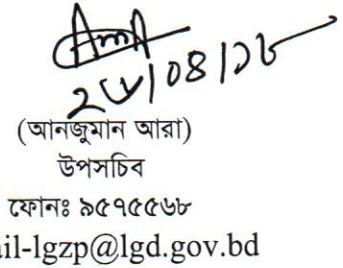 (আনজুমান আরা)
উপসচিব
ফোনঃ ৯৫৭৫৫৬৮
il-lgzp@lgd.gov.bd